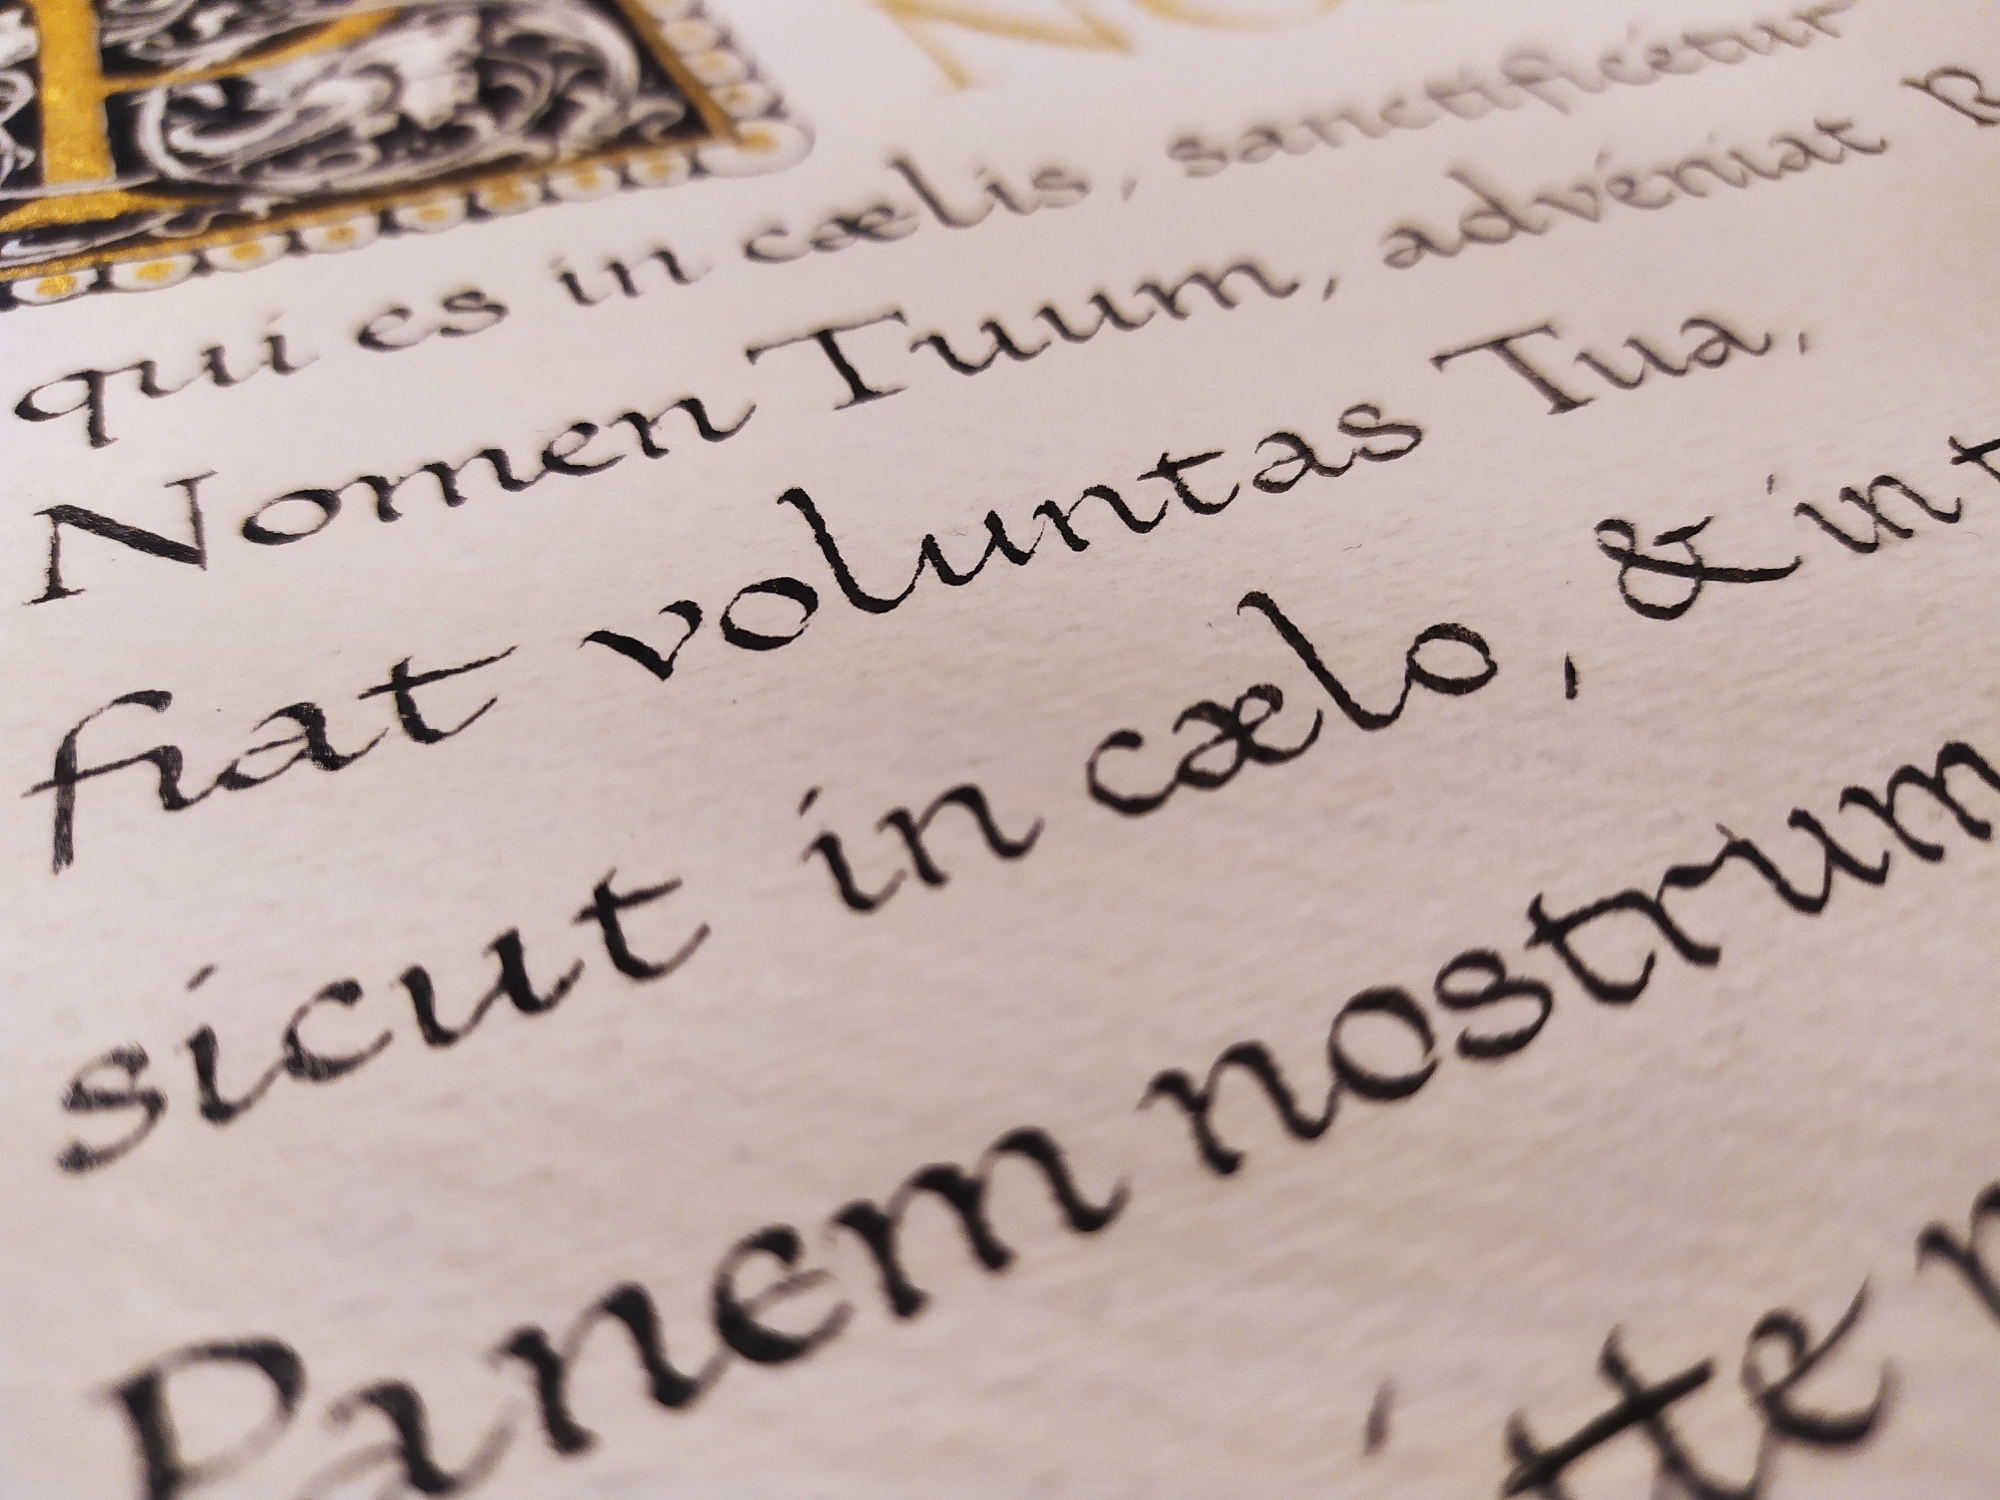 P NO
qui es in cælis, sanctificétur
Nomen Tuum, advéniat R
fiat voluntas Tua,
sicut in cælo, & in t
Panem nostrum
itte n